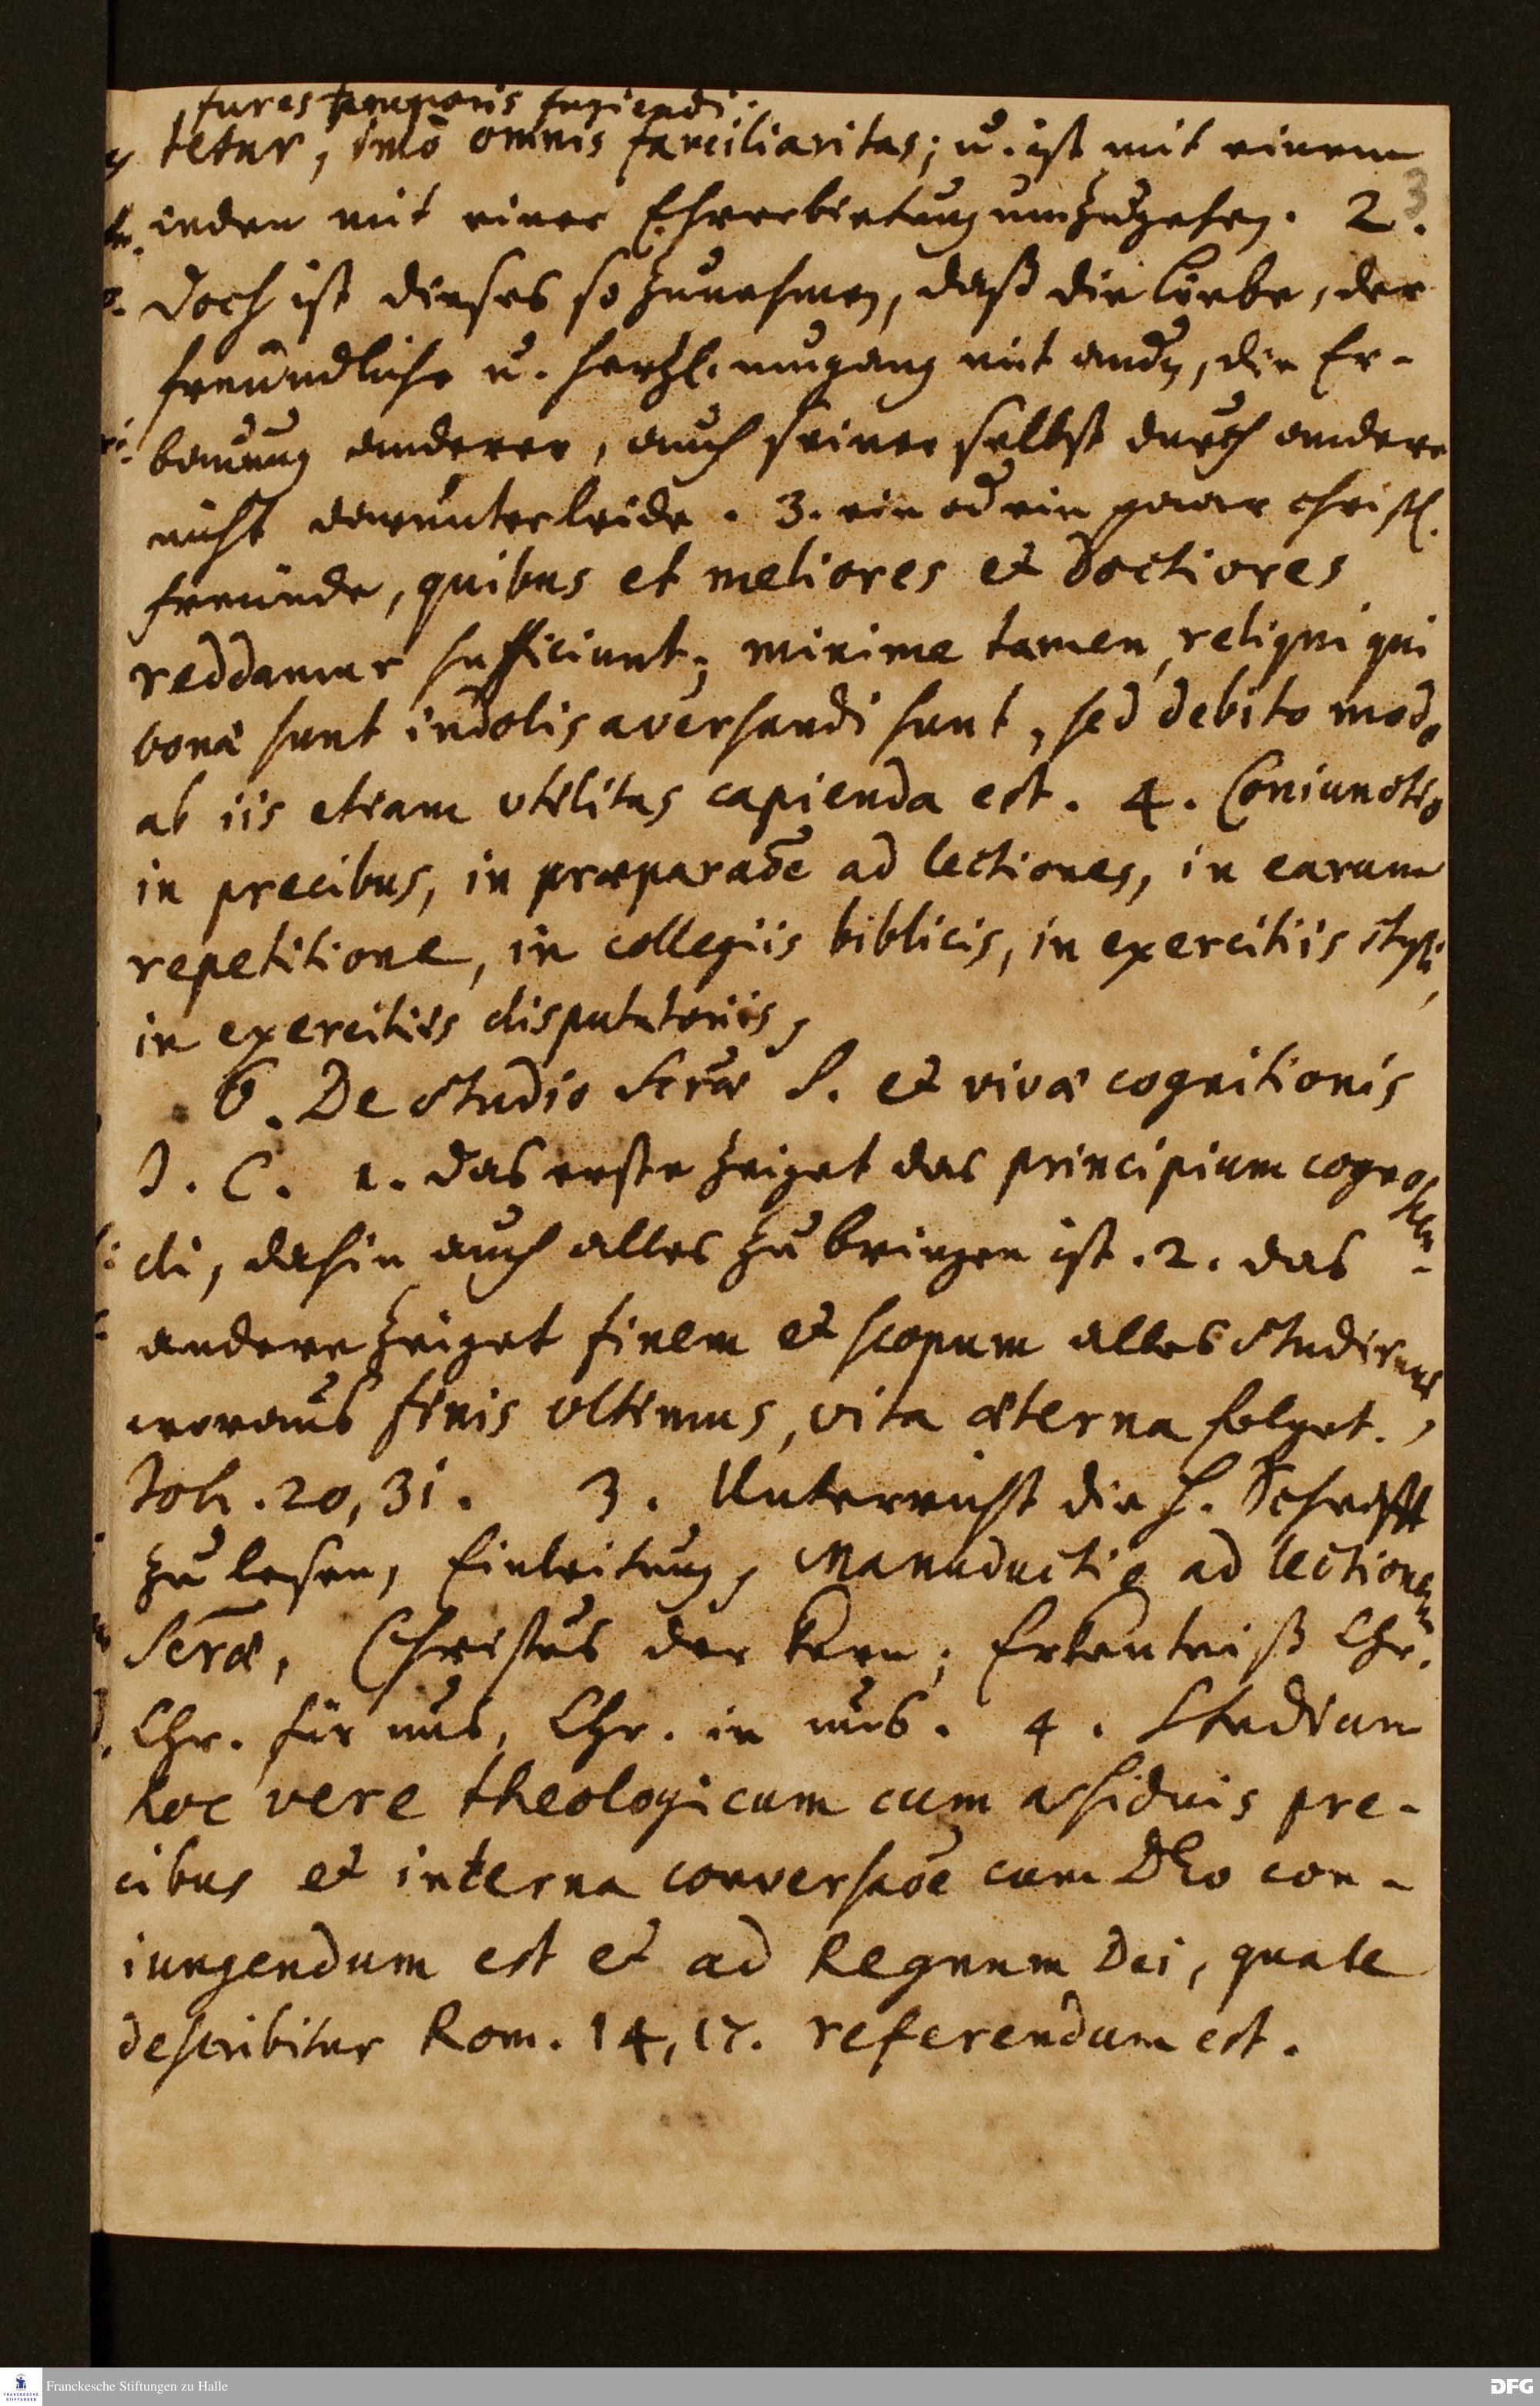 fures temporis fugiendi.
tetur, imò omnis familiaritas; u. ist mit einem
ieden mit einer Ehrerbietung umzugehen. 2.
3
Doch ist dieses so zunehmen, daß die Liebe, der
freundliche u. hertzl. umgang mit andn, die Er-
bauung anderer, auch seiner selbst durch andere
nicht darunter leide. 3. ein od ein paar christl.
freunde, quibus et meliores et doctiores
reddamur sufficiunt; minime tamen reliqui qui
bonæ sunt indolis aversandi sunt, sed debito modo
ab iis etiam utilitas capienda est. 4. Coniunctio
in precibus, in præparaõe ad lectiones, in earum
repetitione, in collegiis biblicis, in exercitiis styli,
in exercitiis disputatoriis,
6. De studio Scræ S. et vivæ cognitionis
J. C. 1. das erste zeiget das principium cognoscen-
di, dahin auch alles zu bringen ist. 2. das
andere zeiget finem et scopum alles studirens,
woraus finis ultimus, vita æterna folget.
Joh. 20, 31. 3. Unterricht die H. Schrifft
zu lesen, Einleitung, Manuductio ad lectionem
Scræ, Christus der Kern; Erkentniß Chr.
Chr. für uns, Chr. in uns. 4. Studium
hoc vere theologicum cum assiduis pre-
cibus et interna conversaõe cum DEo con-
iungendum est et ad Regnum Dei, quale
describitur Rom. 14, 17. referendum est.
Franckesche Stiftungen zu Halle
DFG